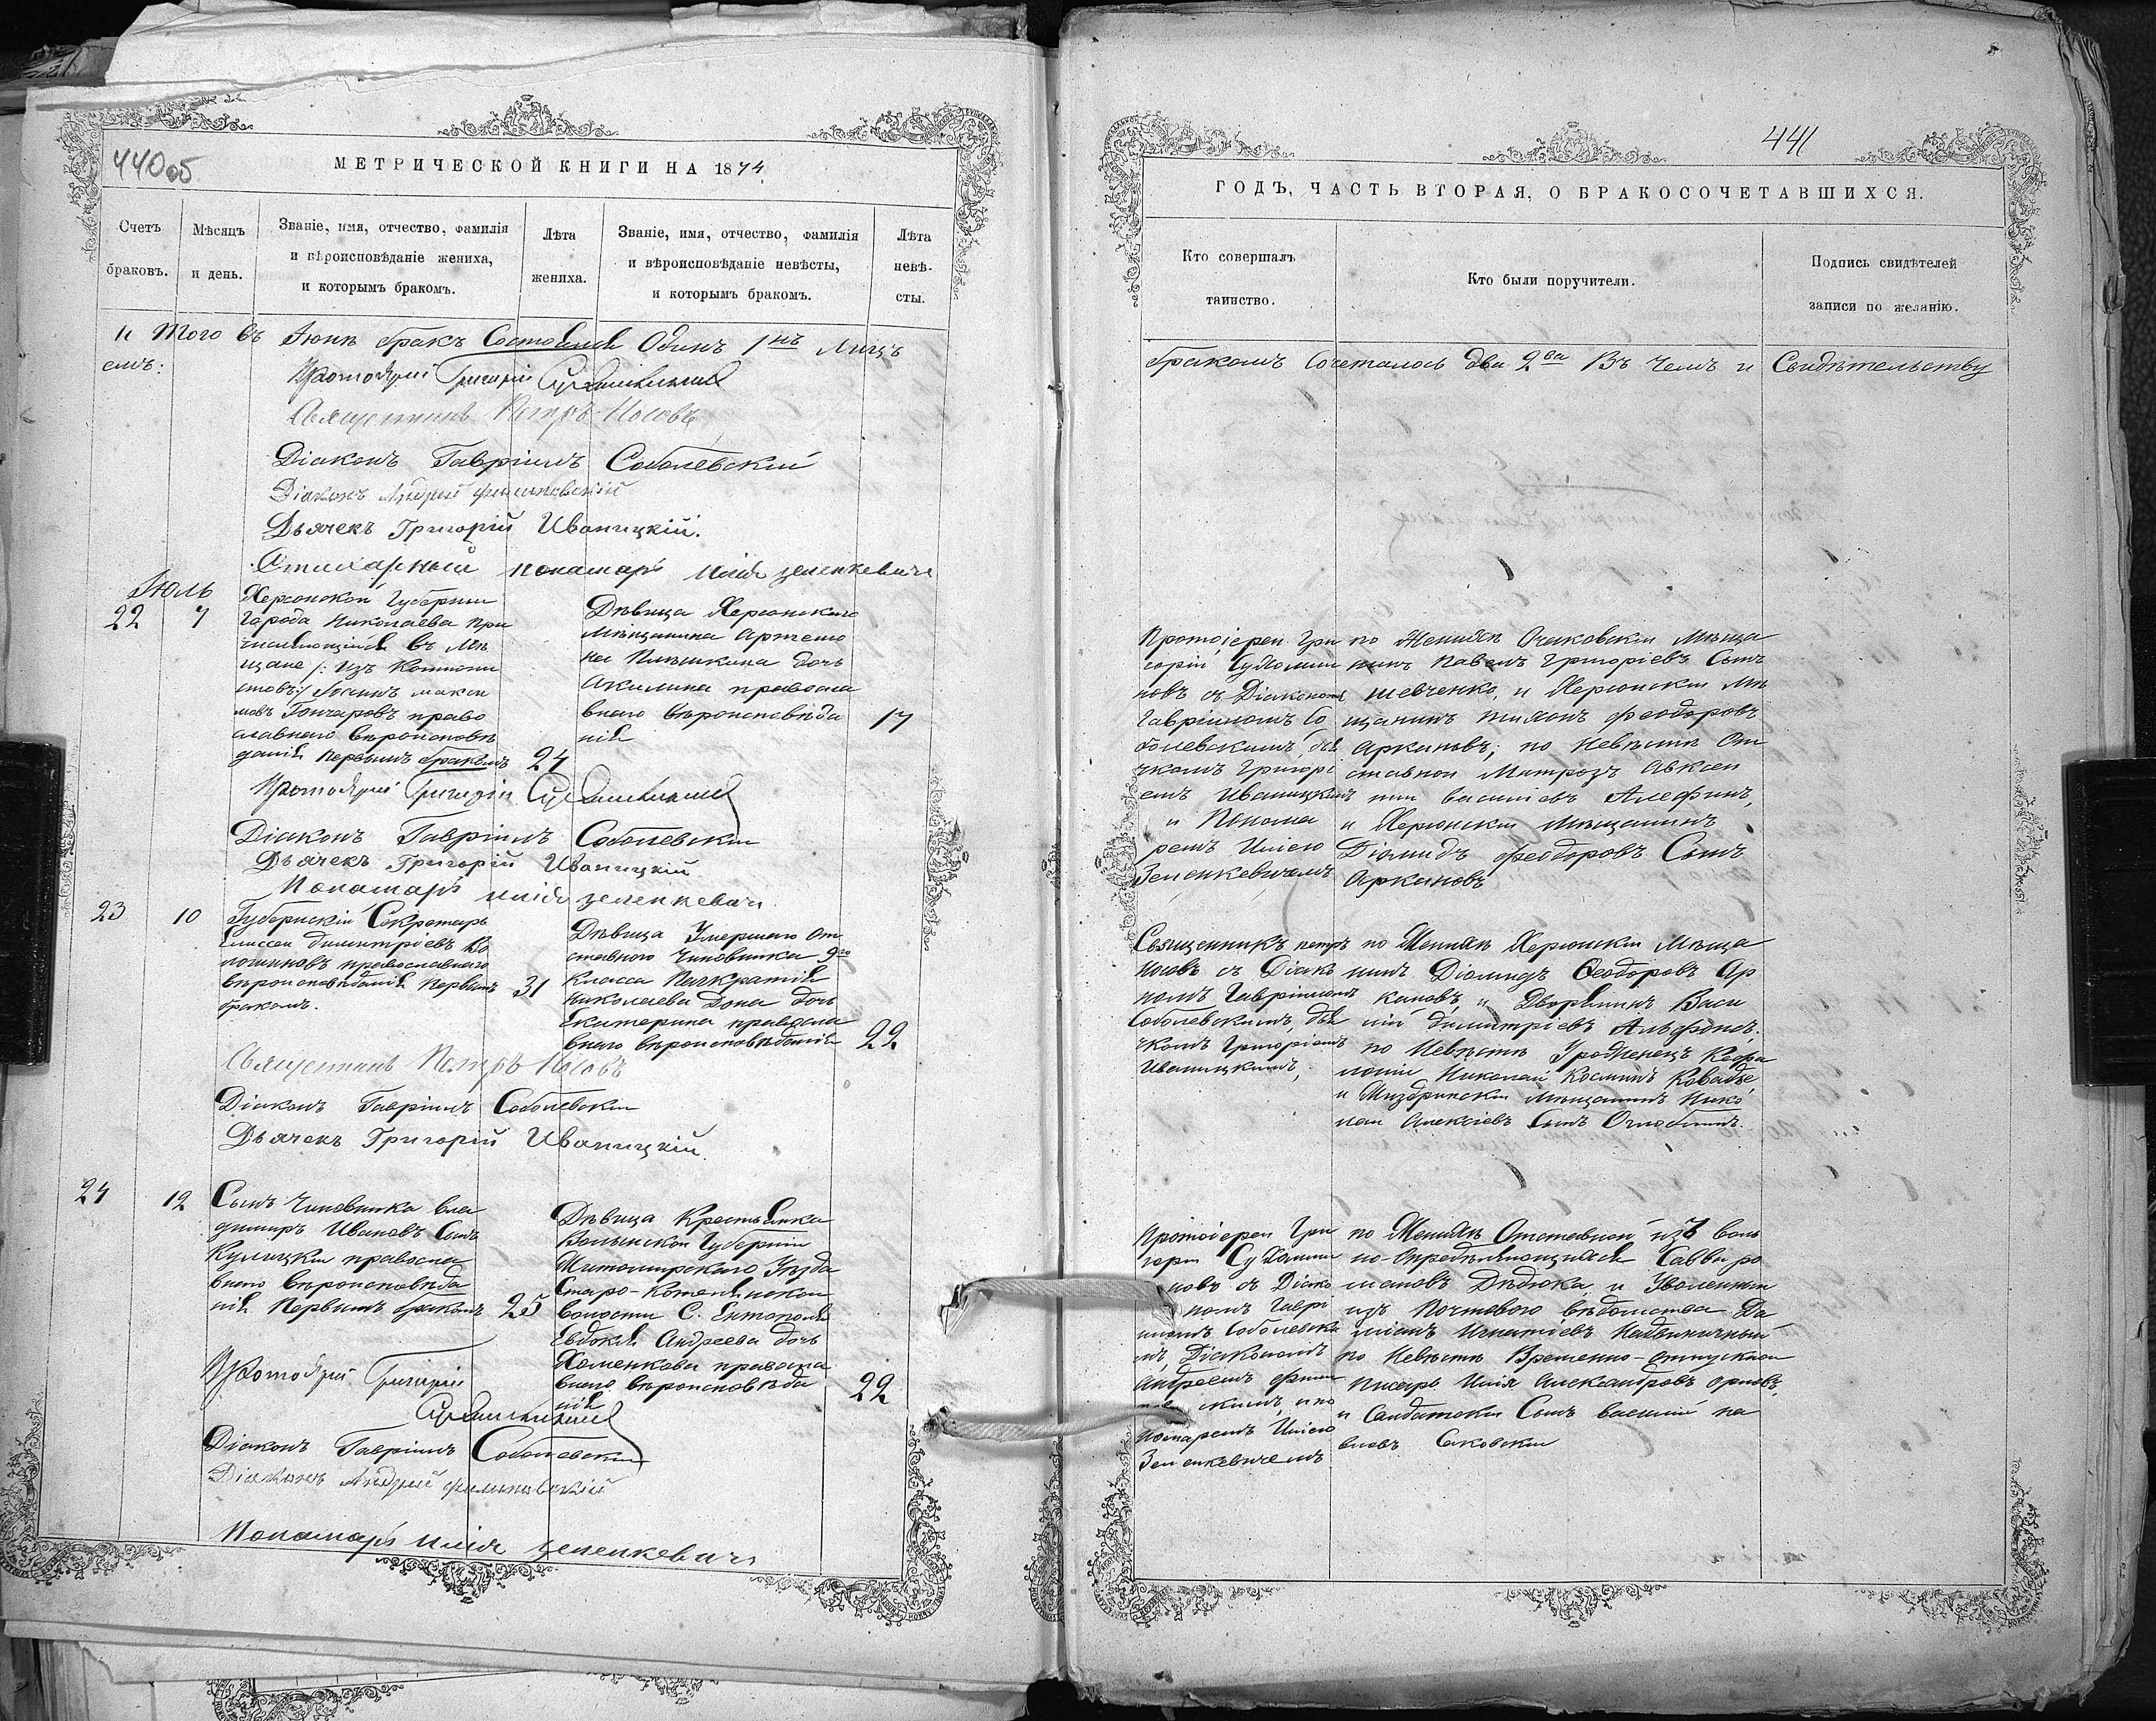 440об
МЕТРИЧЕСКОЙ КНИГИ НА 1874
Счетъ браковъ.
Мѣсяцъ и день.
Званіе, имя, отчество, фамилія
и вѣроисповѣданіе жениха,
и которымъ бракомъ.
Лѣта жениха.
Званіе, имя, отчество, фамилія
и вѣроисповѣданіе невѣсты,
и которымъ бракомъ.
Лѣта невѣ-
сты.
И Того въ Іюнѣ бракъ Состоялся Одинъ 1нъ Лицъ
емъ:
Протоіерей Григорій Сухомлиновъ
Священникъ Петръ Носовъ
Діаконъ Гавріилъ Соболевскій
Діаконъ Андрей
Дьячекъ Григорій Иваницкій.
Стихарный понамарь Илія Зеленкевичъ
Іюль
22 7
Херсонской Губерніи
Города Николаева при
числяющійся въ Мѣ
щане /: изъ Кантони
стовъ:/ максі
мовъ Гончаровъ право
славнаго вѣроисповѣ
данія первымъ бракомъ 24
Дѣвица Херсонскаго
Мѣщанина Артемо
на дочь
Акилина правосла
внаго вѣроисповѣда
нія
17
Протоіерей Григорій Сухомлиновъ
Діаконъ Гавріилъ Соболевскій
Дьячекъ Григорій Иваницкій
Понамарь Илія Зеленкевичъ.
23 10
Губернскій Секретарь
Елиссей Димитріевъ Во
лошиновъ православнаго
вѣроисповѣданія Первымъ 31
бракомъ.
Дѣвица Умершаго От
ставнаго Чиновника 9го
класса Панкратія
Николаева Дона дочь
Екатерина правосла
внаго вѣроисповѣданія 22
Священникъ Петръ Носовъ
Діаконъ Гавріилъ Соболевскій
Дьячекъ Григорій Иваницкій.
24 12
Сынъ Чиновника Вла
диміръ Ивановъ Сынъ
Кулицкій правосла
внаго вѣроисповѣда
нія Первымъ бракомъ 25
Дѣвица Крестьянка
Волынской Губерніи
Житомирскаго Уѣзда
Старо-Котельнской
волости С.
Евдокія Андреева дочь
Хоменкова правосла
внаго вѣроисповѣда 22
нія
Протоіерей Григорій
Сухомлиновъ
Діаконъ Гавріилъ Соболевскій
Діаконъ Андрей
Понамарь Илія Зеленкевичъ
441
ГОДЪ, ЧАСТЬ ВТОРАЯ, О БРАКОСОЧЕТАВШИХСЯ.
Кто совершалъ
таинство.
Кто были поручители.
Подпись свидѣтелей
записи по желанію.
бракомъ Сочеталось два 2ва Въ Чемъ и Свидѣтельству
Протоіерей Гри
горій Сухомли
новъ съ Діакономъ
Гавріиломъ Со
болевскимъ, дья
чкомъ Григорі
емъ Иваницкимъ
и Понома
ремъ Иліею
Зеленкевичемъ
по Женихѣ Очаковскій Мѣща
нинъ Павелъ Григоріевъ Сынъ
Шевченко, и Херсонскій Мѣ
щанинъ Феодоровъ
Аркановъ; по Невѣстѣ От
ставной Матрозъ Авксен
тій Василіевъ Алефинъ,
и Херсонскій Мѣщанинъ
Діомидъ Феодоровъ Сынъ
Аркановъ
Священникъ петръ
Носовъ съ Діако
номъ Гавріиломъ
Соболевскимъ, дья
чкомъ Григоріемъ
Иваницкимъ,
по Женихѣ Херсонскій Мѣща
нинъ Діомидъ Ѳеодоровъ Ар
кановъ, и Дворянинъ Васи
лій Димитріевъ
по Невѣстѣ Уроженецъ Кефа
лоніи Николай Косминъ
и Мѣщанинъ Нико
лай Алексіевъ Сынъ
Протоіерей Гри
горій Сухомли
новъ съ Діако
номъ Гаврі
иломъ Соболевски
мъ, Діакономъ
Андреемъ
скимъ, и по
номаремъ Иліею
Зеленкевичемъ
по Женихѣ Отставной изъ воль
но-опредѣляющихся Савва Ро
мановъ Дѣдюка, и Уволенный
изъ Почтоваго вѣдомства Да
ніилъ Игнатіевъ
по Невѣстѣ Временно-отпускной
писарь Илія Александровъ Орловъ,
и Солдатскій Сынъ Василій па
вловъ